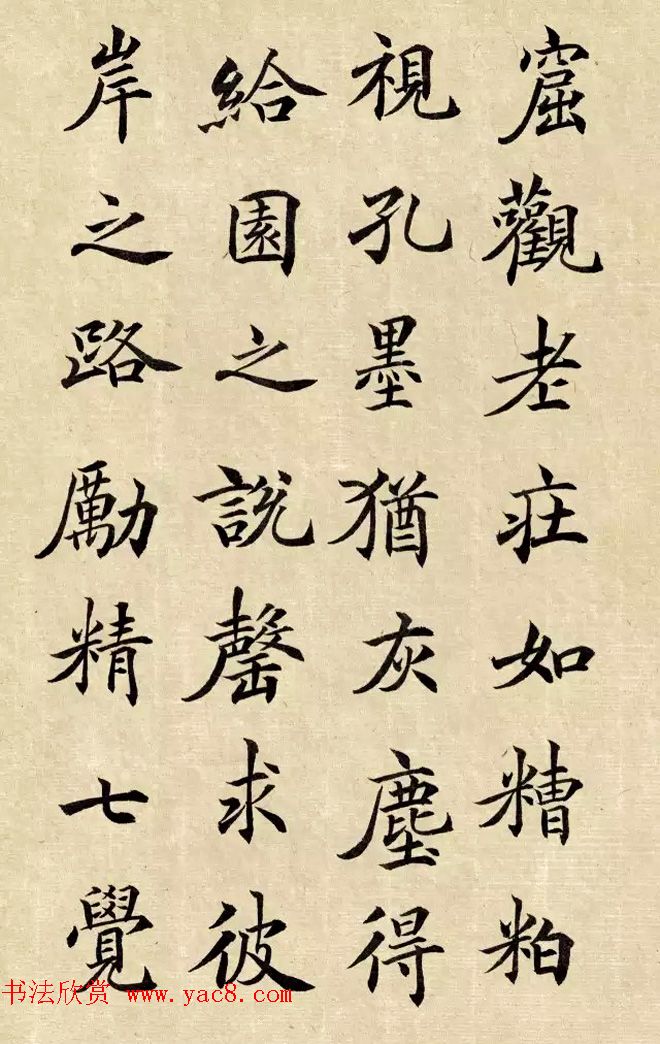 窟觀老莊如糟粕
視孔墨猶灰塵得
給園之說罄求彼
岸之路勵精七覺
书法欣赏 www.yac8.com